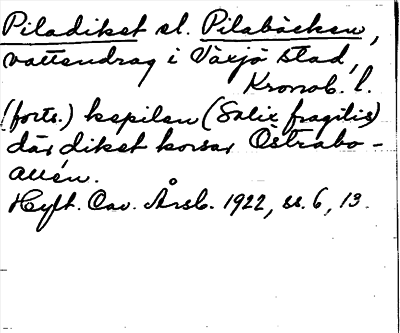 Piladiket el. Pilabäcken,
vattendrag i Växjö stad,
Kronob. l.
(forts.) kepilen (Salix fragilis)
där diket korsar Östrabo-
allén.
Hylt. Cav. Årsb. 1922, ss. 6, 13.